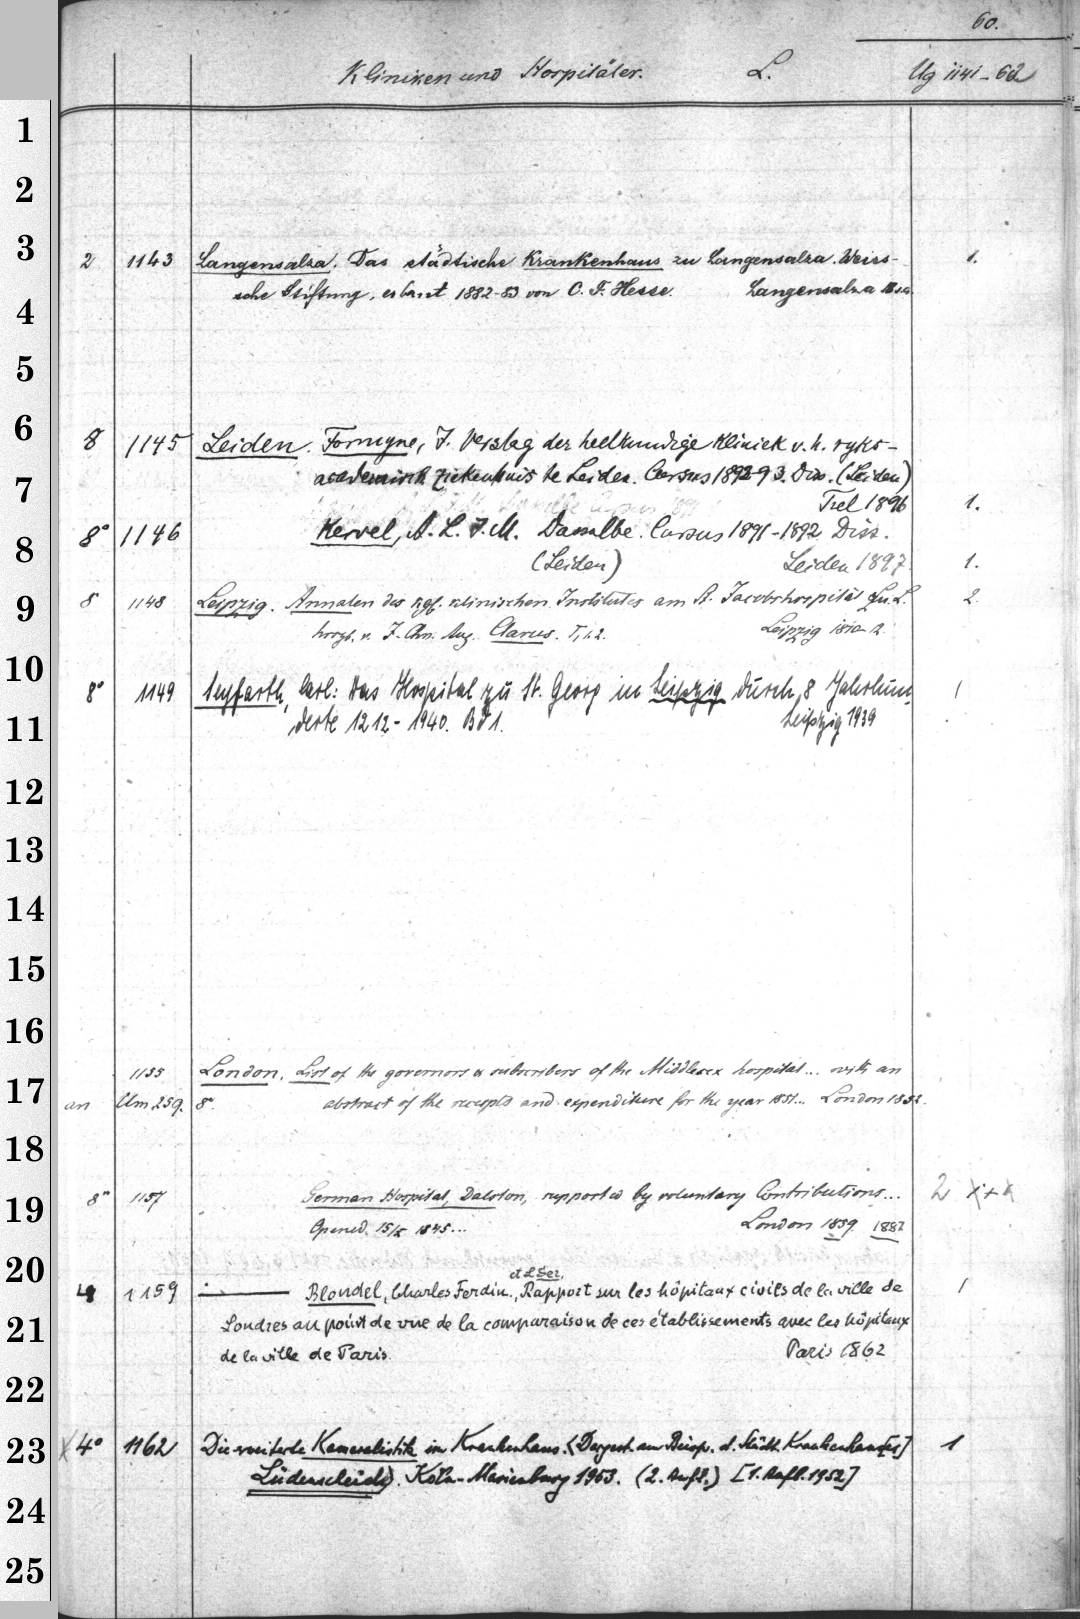 60.
Kliniken und Hospitäler. L. Ug 1141-62
1
2
3
2 1143 Langensalza. Das städtische Krankenhaus zu Langensalza. Weiss-
sche Stiftung, erbaut 1882-83 von C. F. Hesse. Langensalza
1.
4
5
6
8 1145 Leiden. Formyne, J. Verslag der heelkundige Kliniek v. h. ryks-
academisch Ziekenhuis te Leiden. Cursus 1892-93. Diss. (Leiden)
7
Tiel 1896 1.
8
8° 1146 Kervel, A. L. J. M. Dasselbe. Cursus 1891-1892 Diss.
(Leiden) Leiden 1897. 1.
9
8 1148 Leipzig. Annalen des kgl. klinischen Institutes am St. Jacobshospital zu L. 2.
hrsg. v. J. Chr. Aug. Clarus. I, 1.2. Leipzig 1810-12.
10
8° 1149 Seyfarth, Carl: Das Hospital zu St. Georg in Leipzig durch 8 Jahrhun- 1
derte 1212-1940. Bd 1. Leipzig 1939
11
12
13
14
15
16
1155 London. List of the governors & subscribers of the Middlesex hospital... with an
17
an Um 259. 8°. abstract of the receipts and expenditure for the year 1851... London 1852.
18
19
8° 1157 German Hospital, Dalston, supported by voluntary Contributions... 2
Opened 15/X 1845... London 1859 1882
20
et L Ser,
4 1159 Blondel, Charles Ferdin., Rapport sur les hôpitaux civils de la ville de 1
21
Londres au point de vue de la comparaison de ces établissements avec les hôpitaux
de la ville de Paris. Paris 1862
22
23
4° 1162 Die erweiterte Kameralistik im Krankenhaus. (Dargest. am Beisp. d. Städt. Krankenhauses] 1
Lüdenscheid). Köln-Marienburg 1953. (2. Aufl.) [1. Aufl. 1952]
24
25